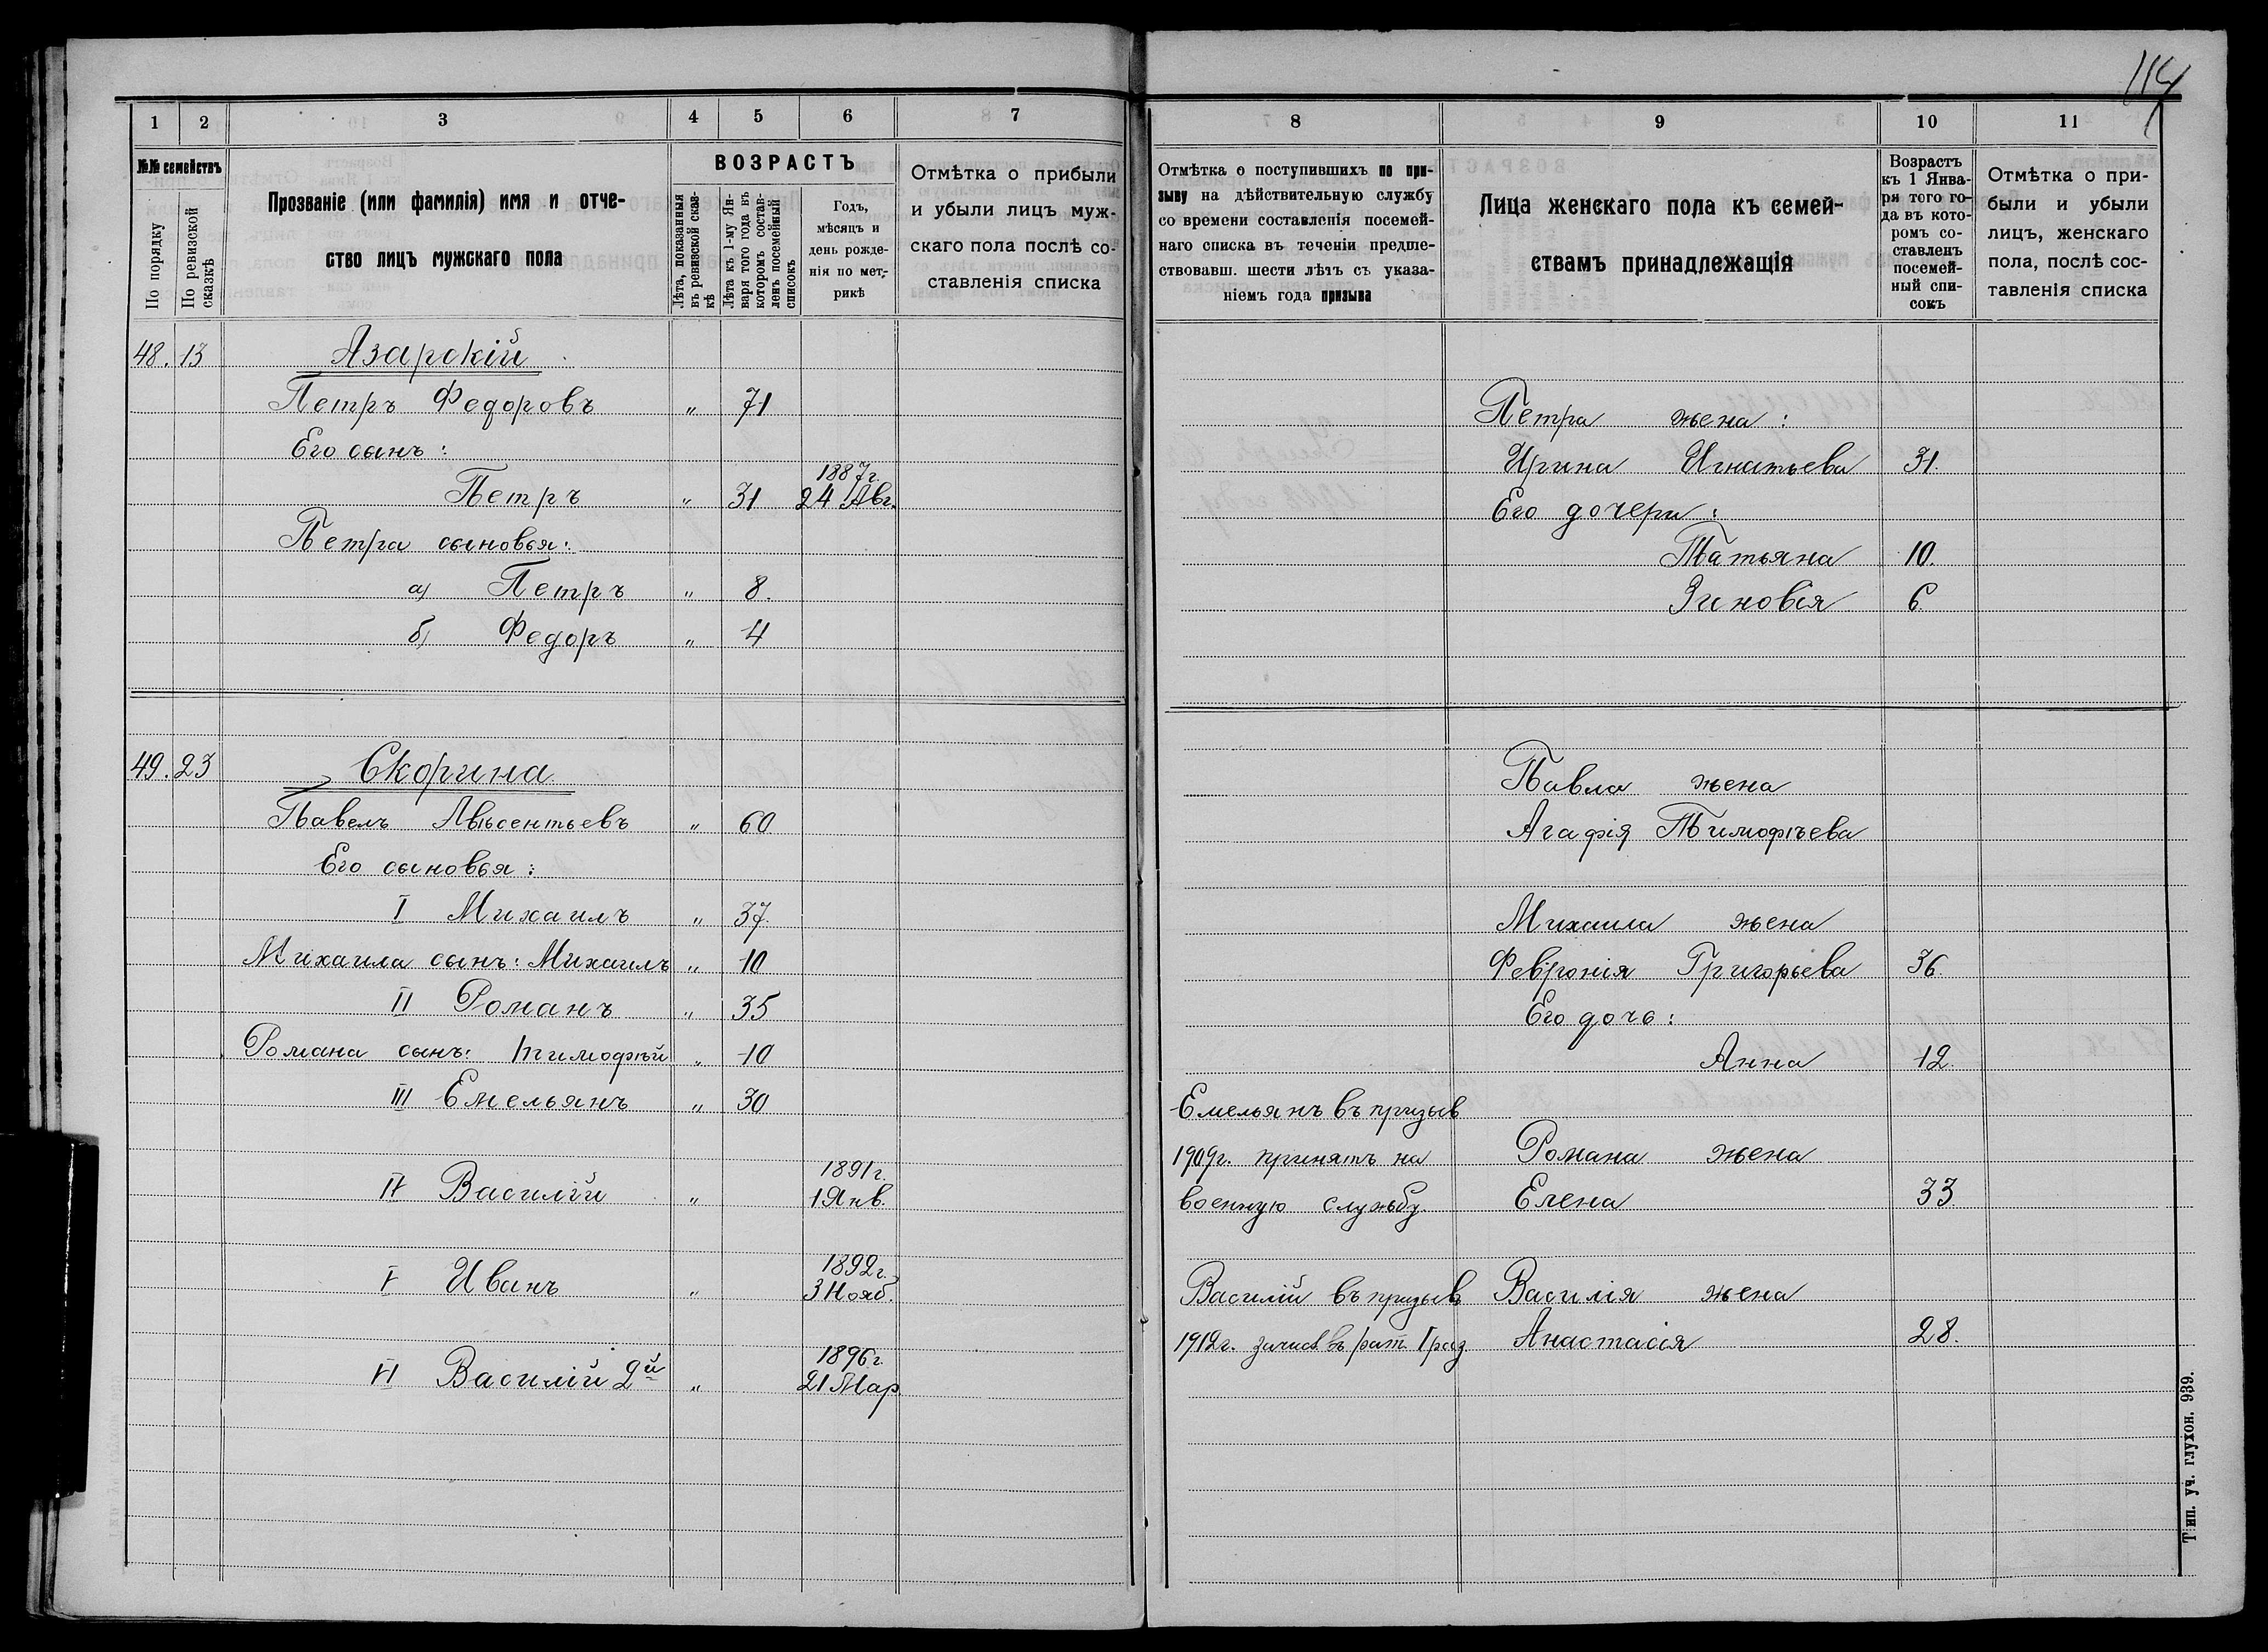 114
1 2 3 4 5 6 7
№№ семействъ
По порядку
По ревизской сказкѣ
Прозваніе (или фамилія) имя и отче-
ство лицъ мужскаго пола
ВОЗРАСТЪ
Лѣта, показанныя
въ ревизской сказ-
кѣ
Лѣта къ 1-му Ян-
варя того года въ
которомъ состав-
ленъ посемейный
списокъ
Годъ,
мѣсяцъ и
день рожде-
нія по мет-
рикѣ
Отмѣтка о прибыли
и убыли лицъ муж-
скаго пола послѣ со-
ставленія списка
48. 13 Азарскій
Петръ Федоровъ " 71
Его сынъ:
1887г.
Петръ " 31 24 Авг.
Петра сыновья:
а) Петръ " 8.
б) Федоръ " 4
49. 23 Скорина
Павелъ Авксентьевъ " 60
Его сыновья:
I Михаилъ " 37.
Михаила сынъ: Михаилъ " 10
II Романъ " 35
Романа сынъ: Тимофѣй " 10
III Емельянъ " 30
1891г.
IV Василій " 1 Янв.
1892г.
V Иванъ " 3 Нояб.
1896г.
VI Василій 2й " 21 Мар
8 9 10 11
Отмѣтка о поступившихъ по при-
зыву на дѣйствительную службу
со времени составленія посемей-
наго списка въ теченіи предше-
ствовавш. шести лѣтъ съ указа-
ніемъ года призыва
Лица женскаго пола къ семей-
ствамъ принадлежащія
Возрастъ
къ 1 Янва-
ря того го-
да въ кото-
ромъ со-
ставленъ
посемей-
ный спи-
сокъ
Отмѣтка о при-
были и убыли
лицъ, женскаго
пола, послѣ сос-
тавленія списка
Петра жена:
Ирина Игнатьева 31.
Его дочери:
Татьяна 10.
Зиновія 6.
Павла жена
Агафія Тимофѣева
Михаила жена
Февронія Григорьева 36.
Его дочь:
Анна 12.
Емельянъ въ призыв
1909г. принятъ на Романа жена
военную службу Елена 33
Василій въ призыв Василія жена
1912г. зачисл въ рат. I раз Анастасія 28.
Тип. уч. глухон. 939.